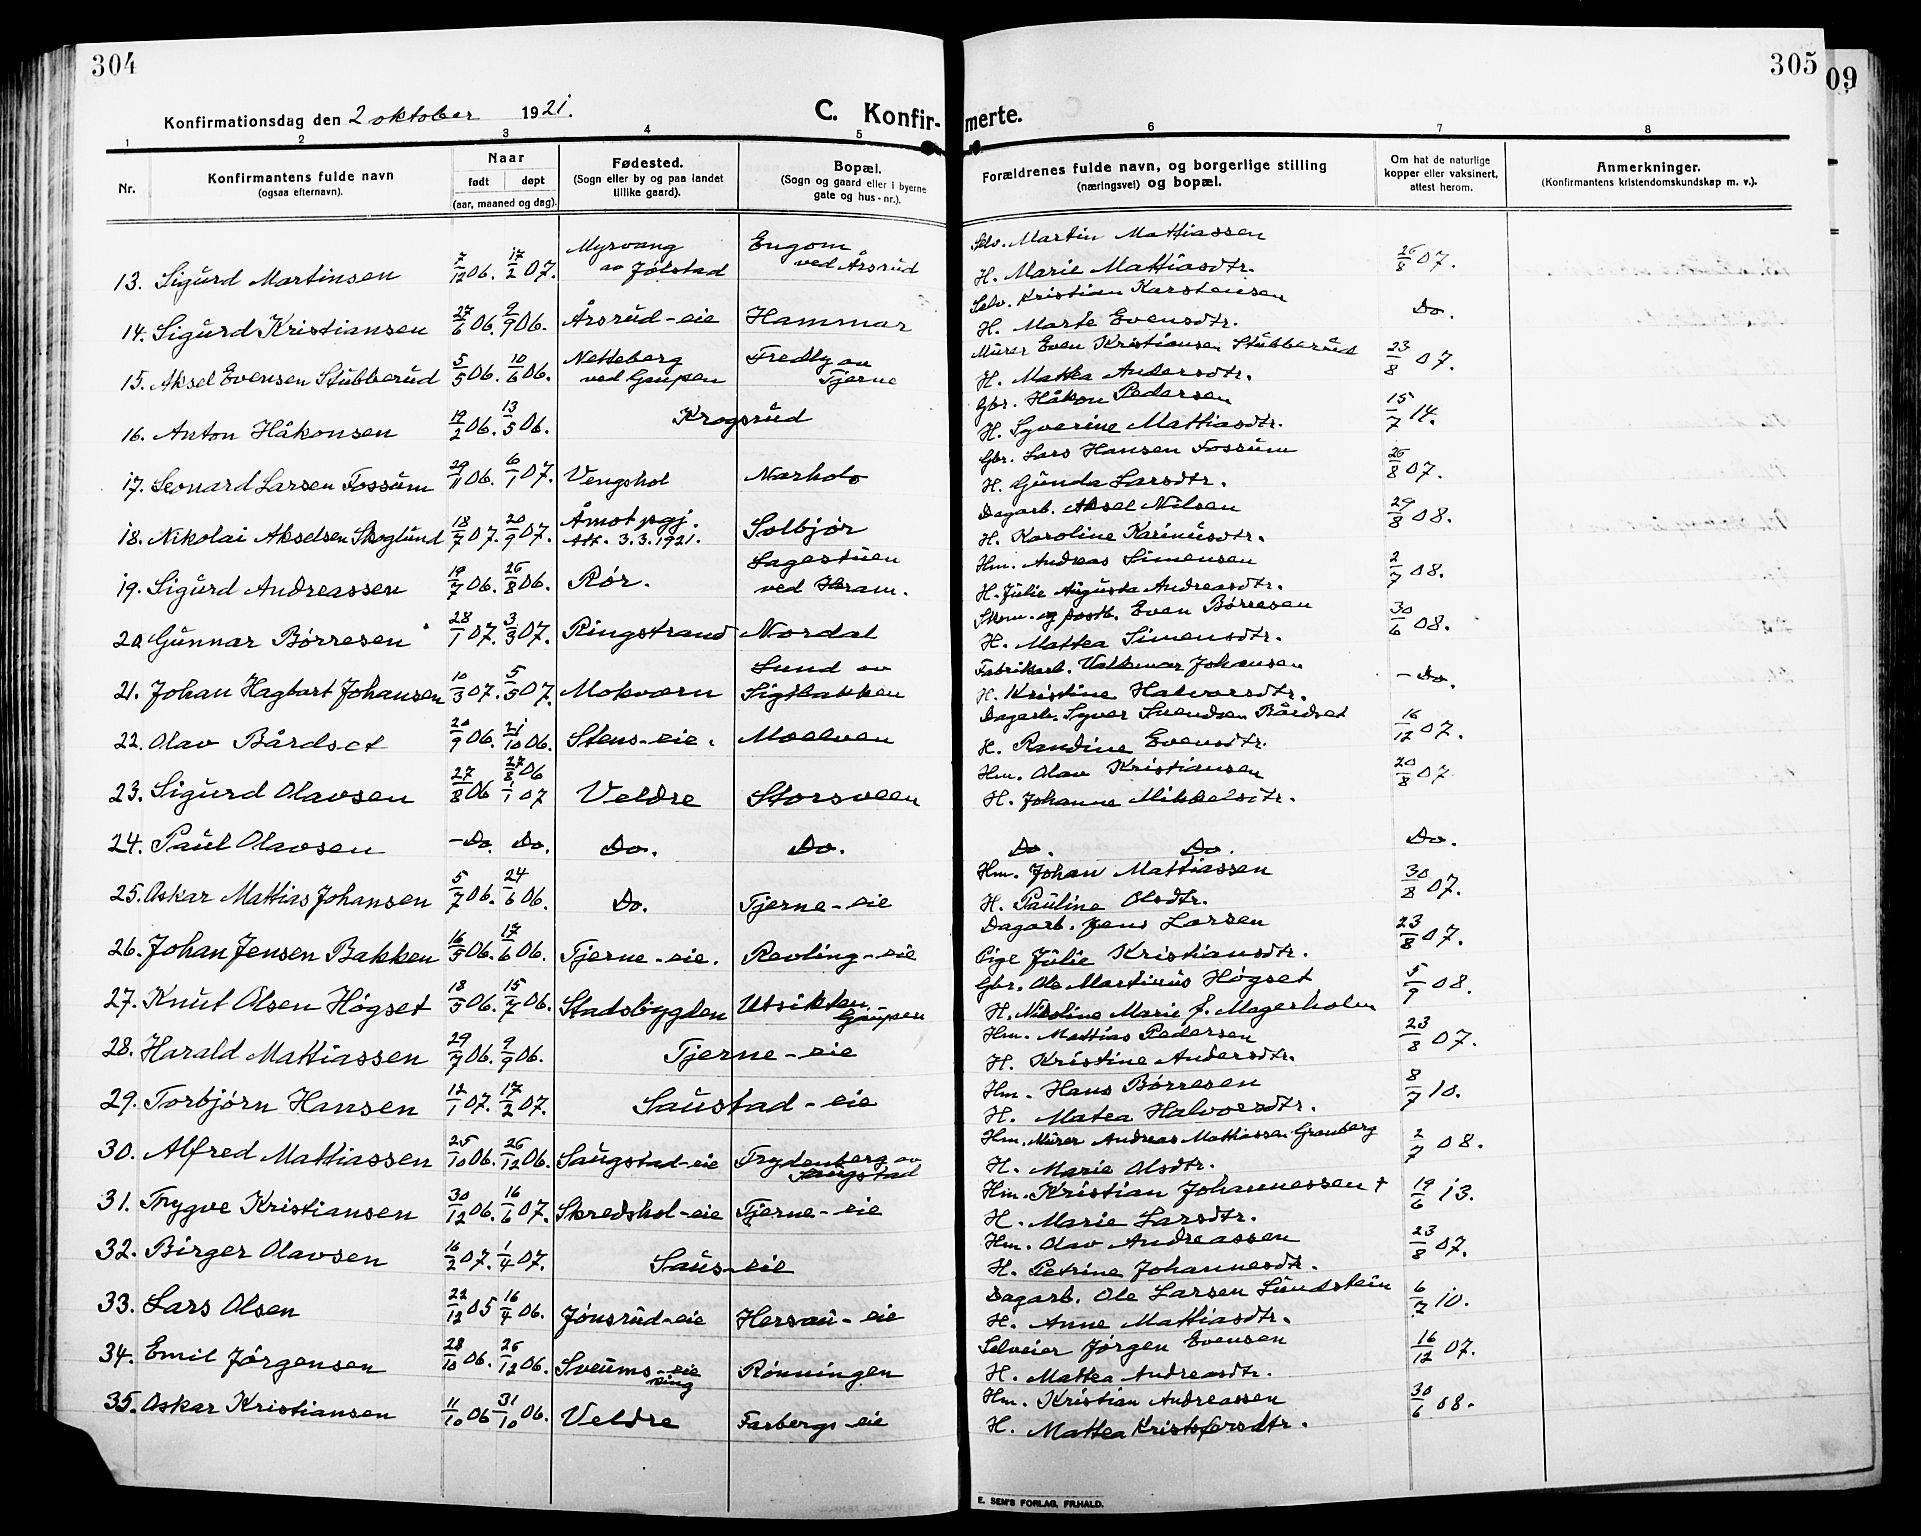 304
305
09
Konfirmationsdag den 2 oktober 1921.
C. Konfir-merte.
1 2 3 4 5 6 7 8
Nr.
Konfirmantens fulde navn (ogsaa efternavn).
Naar født døpt (aar, maaned og dag).
Fødested. (Sogn eller by og paa landet tillike gaard).
Bopæl. (Sogn og gaard eller i byerne gate og hus-nr.).
Forældrenes fulde navn, og borgerlige stilling (næringsvei) og bopæl.
Om hat de naturlige kopper eller vaksinert, attest herom.
Anmerkninger. (Konfirmantens kristendomskundskap m. v.).
13. Sigurd Martinsen 7/12 06. 17/2 07. Myrvang av Jølstad Engom ved Årsrud Selv. Martin Mattiassen H. Marie Mattiasdtr. 26/8 07.
14. Sigurd Kristiansen 27/6 06. 9/9 06. Årsrud-eie Hammar Selv. Kristian Karstensen H. Marte Evensdtr. Do.
15. Aksel Evensen Stubberud 5/5 06. 10/6 06. Netteberg ved Gaupen Fredly av Tjerne Murer Even Kristiansen Stubberud H. Mattea Andersdtr. 23/8 07.
16. Anton Håkonsen 19/2 06. 13/5 06. Krogsrud Gbr. Håkon Pedersen H. Syverine Mattiasdtr. 15/7 14.
17. Leonard Larsen Fossum 29/11 06. 6/1 07. Vengshol Narholo Gbr. Lars Hansen Fossum H. Gunda Larsdtr. 26/8 07.
18. Nikolai Akselsen Skoglund 18/7 07. 20/9 07. Åmot pgj. Att. 3.3.1921. Solbjør Dagarb. Aksel Nilsen H. Karoline Karinusdtr. 29/8 08.
19. Sigurd Andreassen 19/7 06. 26/8 06. Rør. Lagestuen ved Heram. Hm. Andreas Simensen H. Julie Augusta Andreasdtr. 2/7 08.
20 Gunnar Børresen 28/1 07. 3/3 07. Ringstrand Nordal Skom. og postb. Even Børresen H. Mattea Simensdtr. 30/6 08.
21. Johan Hagbart Johansen 10/3 07. 5/5 07. Mokværn Lund av Sigstakken Fabrikarb. Valdemar Johansen H. Kristine Halvorsdtr. - Do.
22. Olav Bårdset 20/9 06. 21/10 06. Stens-eie. Moelven Dagarb. Syver Svendsen Bårdset H. Randine Evensdtr. 16/12 07.
23. Sigurd Olavsen 27/8 06 27/8 06 1/1 07 Veldre Storsveen Hm. Olav Kristiansen H. Johanne Mikkelsdtr. 20/8 07
24. Paul Olavsen - Do. Do. Do. Do. Do. Do. Do.
25. Oskar Mattias Johansen 5/7 06. 24/6 06. Do. Tjerne-eie Hm. Johan Mattiassen H. Pauline Olsdtr. 30/8 07.
26. Johan Jensen Bakken 16/5 06. 17/6 06. Tjerne-eie. Revling-eie Dagarb. Jens Larsen Pige Julie Kristiansdtr. 23/8 07.
27. Knut Olsen Høgset 18/5 06. 15/7 06. Stadsbygden Utsikten Gaupen Gbr. Ole Martinus Høgset H. Nikoline Marie f. Magerholm 5/9 08.
28. Harald Mattiassen 29/7 06. 9/9 06. Tjerne-eie Hm. Mattias Pedersen H. Kristine Andersdtr. 23/8 07.
29. Torbjørn Hansen 12/1 07. 17/2 07. Saustad-eie Hm. Hans Børresen H. Matea Halvorsdtr. 8/7 10.
30. Alfred Mattiassen 25/10 06. 26/12 06. Saugstad-eie Frydenberg av Saugstad Hm. Murer Andreas Mattiassen Granberg H. Marie Olsdtr. 2/7 08.
31. Trygve Kristiansen 30/12 06. 16/6 07. Skredshol-eie Tjerne-eie Hm. Kristian Johannessen + H. Marie Larsdtr. 19/6 13.
32. Birger Olavsen 16/2 07. 1/4 07. Saus-eie Hm. Olav Andreassen H. Petrine Johannesdtr. 23/8 07.
33. Lars Olsen 22/12 05 16/4 06. Jønsrud-eie Hersau-eie Dagarb. Ole Larsen Sundstein H. Anne Mattiasdtr. 6/7 10.
34. Emil Jørgensen 28/10 06. 26/12 06. Sveums-eie Ring Rønningen Selveier Jørgen Evensen H. Mattea Andreasdtr. 16/12 07.
35. Oskar Kristiansen 11/10 06 31/10 06. Veldre Farbergs-eie Hm. Kristian Andreassen H. Mattea Kristofersdtr. 30/6 08.
E. SEM'S FORLAG, FR.HALD.